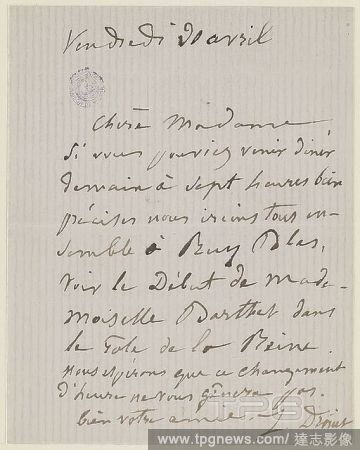 Vendredi 20 avril
Chère Madame
Si vous pouviez venir dîner
demain à sept heures bien
précises nous irions tous en-
semble à Ruy Blas,
voir le Début de Made-
moiselle Barthet dans
le role de la Reine.
nous espérons que ce changement
d'heure ne vous gênera pas.
bien votre amie J Drouet
TPG
www.tpgnews.com/ 達志影像